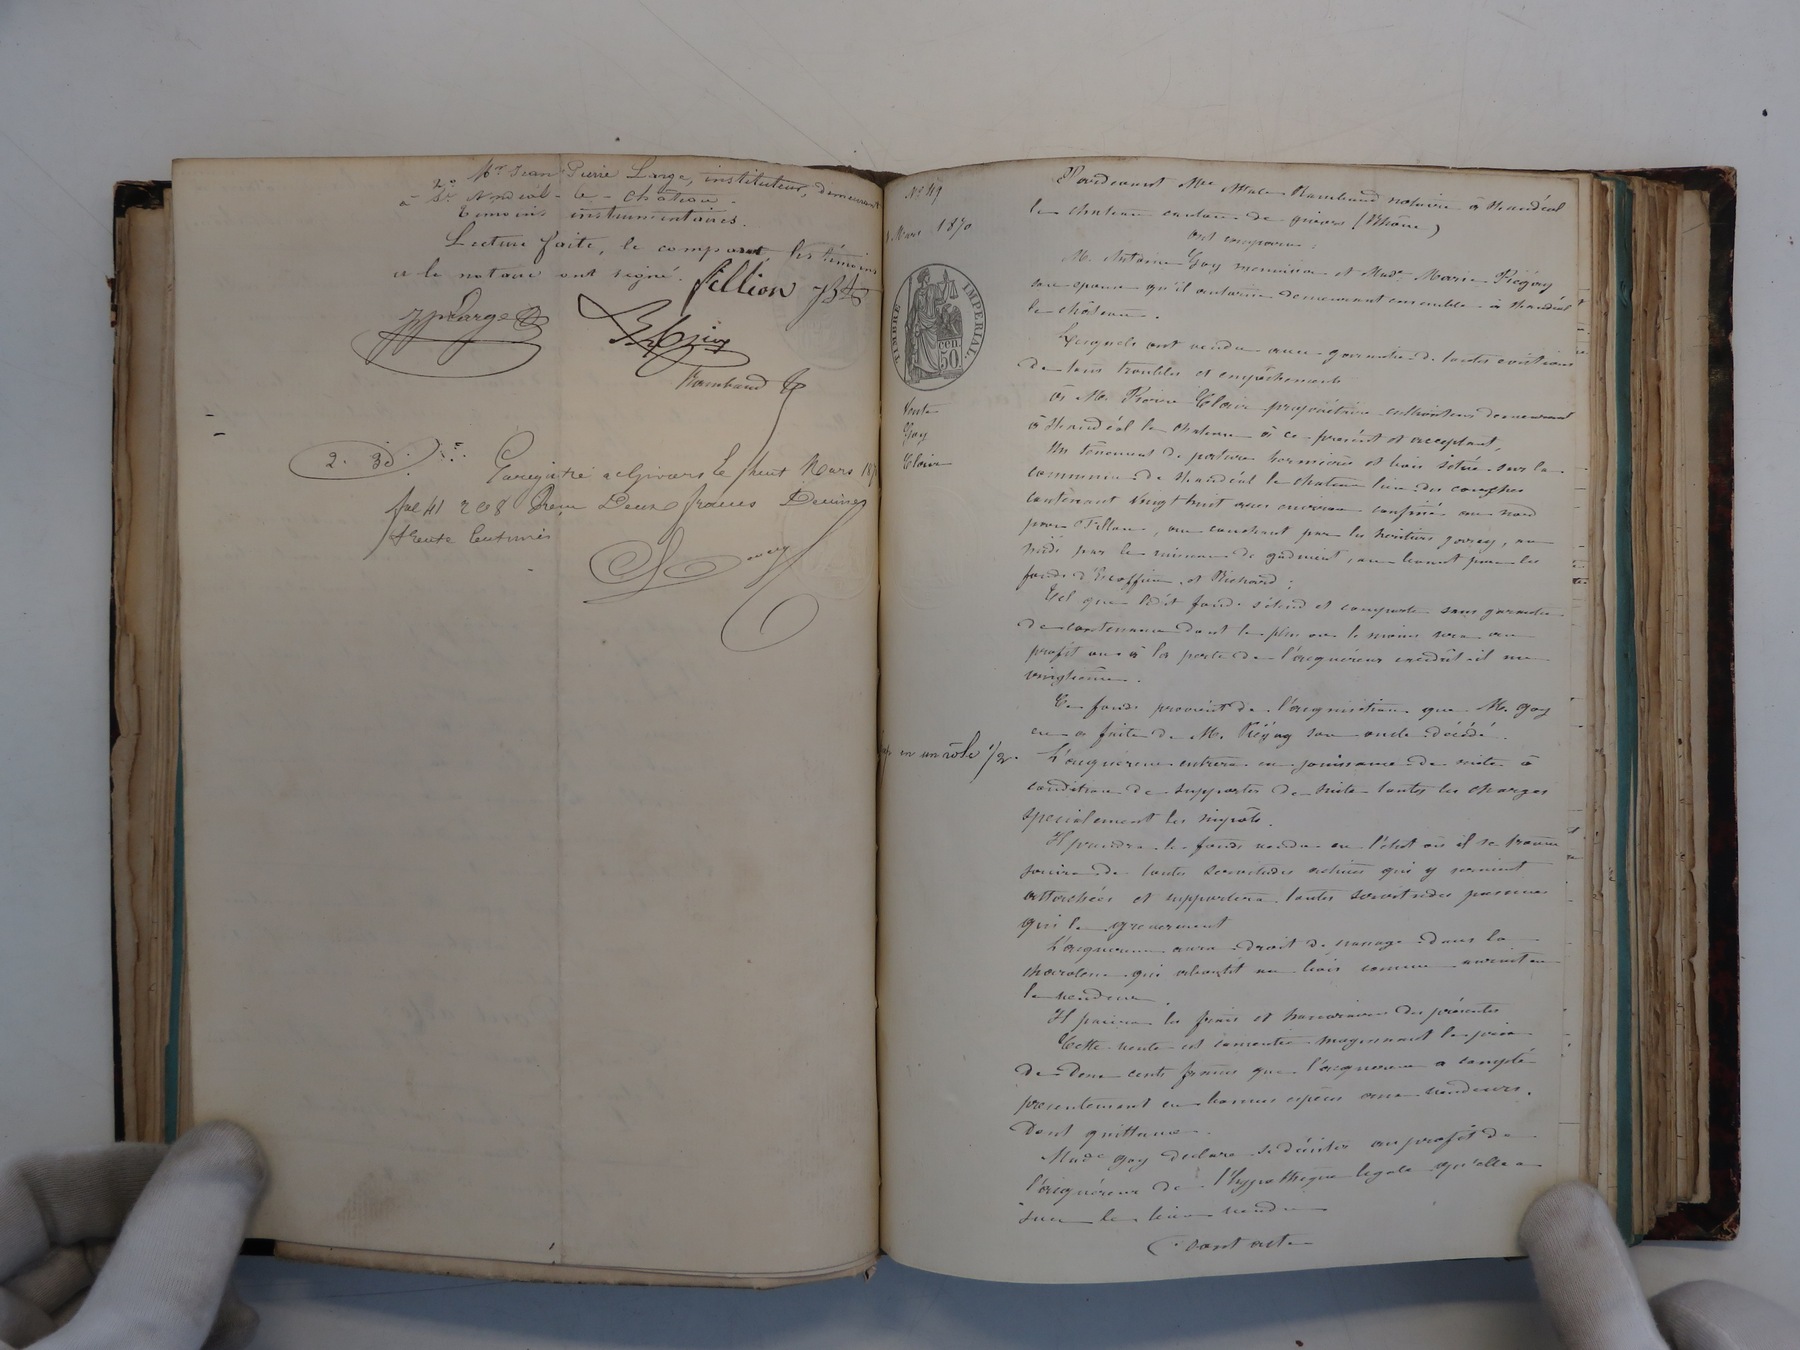 2° Mr Jean Pierre Large, instituteur, demeurant
à St Andéol-le-Château.
témoins instrumentaires.
Lecture faite, le comparant, les témoins
et le notaire ont signé.
fillion
JpLarge
Rambaud
2. 30
Enregistré à Givors le huit Mars 187
fol 41 c 8 Reçu Deux francs Decimes
trente Centimes
N° 49
Mars 1870
TIMBRE IMPERIAL
50 cen.
Vente
Goy
Cloire
en un rôle 1/2.
Pardevant Me Rambaud notaire à St andéol
le chateau canton de givors (Rhône)
ont comparu :
M. Antoine Goy menuisier et Made Marie
son épouse qu'il autorise demeurant ensemble à St andéol
le château.
Lesquels ont vendu avec garantie de toutes évictions
de tous troubles et empêchements
à M. Pierre Cloire propriétaire cultivateur demeurant
à St andéol le chateau à ce présent et acceptant,
Un tènement de pature et bois situé sur la
commune de St andéol le chateau lieu des
contenant vingt huit ares environ confiné au nord
par , au couchant par les héritiers , au
midi par le ruisseau de , au levant par les
fonds d'Escoffier et Richard ;
Tel que ledit fonds s'étend et comporte sans garantie
de contenance dont le plus ou le moins sera au
profit ou à la perte de l'acquéreur excédât-il un
vingtième.
Ce fonds provient de l'acquisition que M. Goy
en a faite de M. son oncle décédé.
L'acquéreur entrera en jouissance de suite à
condition de supporter de suite toutes les charges
spécialement les impôts.
Il prendra le fonds vendu en l'état où il se trouve
jouira de toutes servitudes actives qui y seraient
attachées et supportera toutes servitudes passives
qui le greveraient
L'acquéreur aura droit de passage dans la
qui aboutit au bois comme
le vendeur.
Il paiera les frais et honoraires des présentes
Cette vente est consentie moyennant le prix
de deux cents francs que l'acquéreur a compté
présentement en bonnes espèces aux vendeurs.
Dont quittance.
Made Goy déclare se désister au profit de
l'acquéreur de l'hypothèque légale qu'elle a
sur le bien vendu
Dont acte